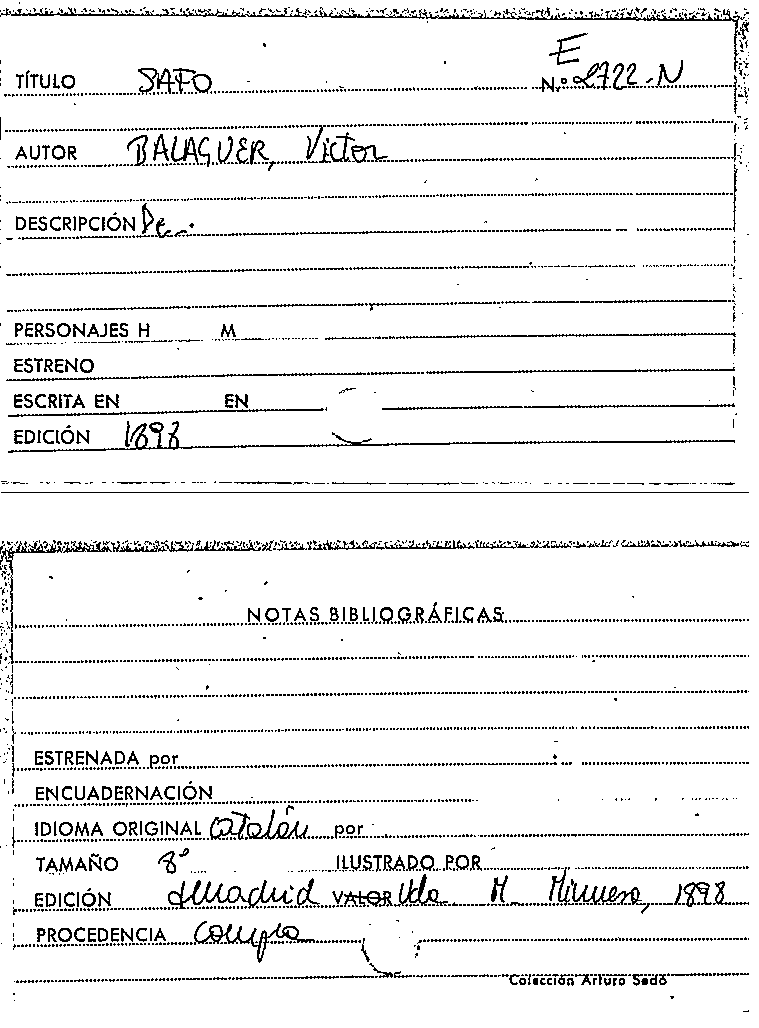 E
TÍTULO SAFO N.º 2722-N
AUTOR BALAGUER, Victor
DESCRIPCIÓN
PERSONAJES H M
ESTRENO
ESCRITA EN EN
EDICIÓN 1898
NOTAS BIBLIOGRÁFICAS
ESTRENADA por
ENCUADERNACIÓN
IDIOMA ORIGINAL Catalán por
TAMAÑO 8º ILUSTRADO POR
EDICIÓN Madrid VALOR Vda M. Minuesa, 1898
PROCEDENCIA Compra
Colección Arturo Sedó